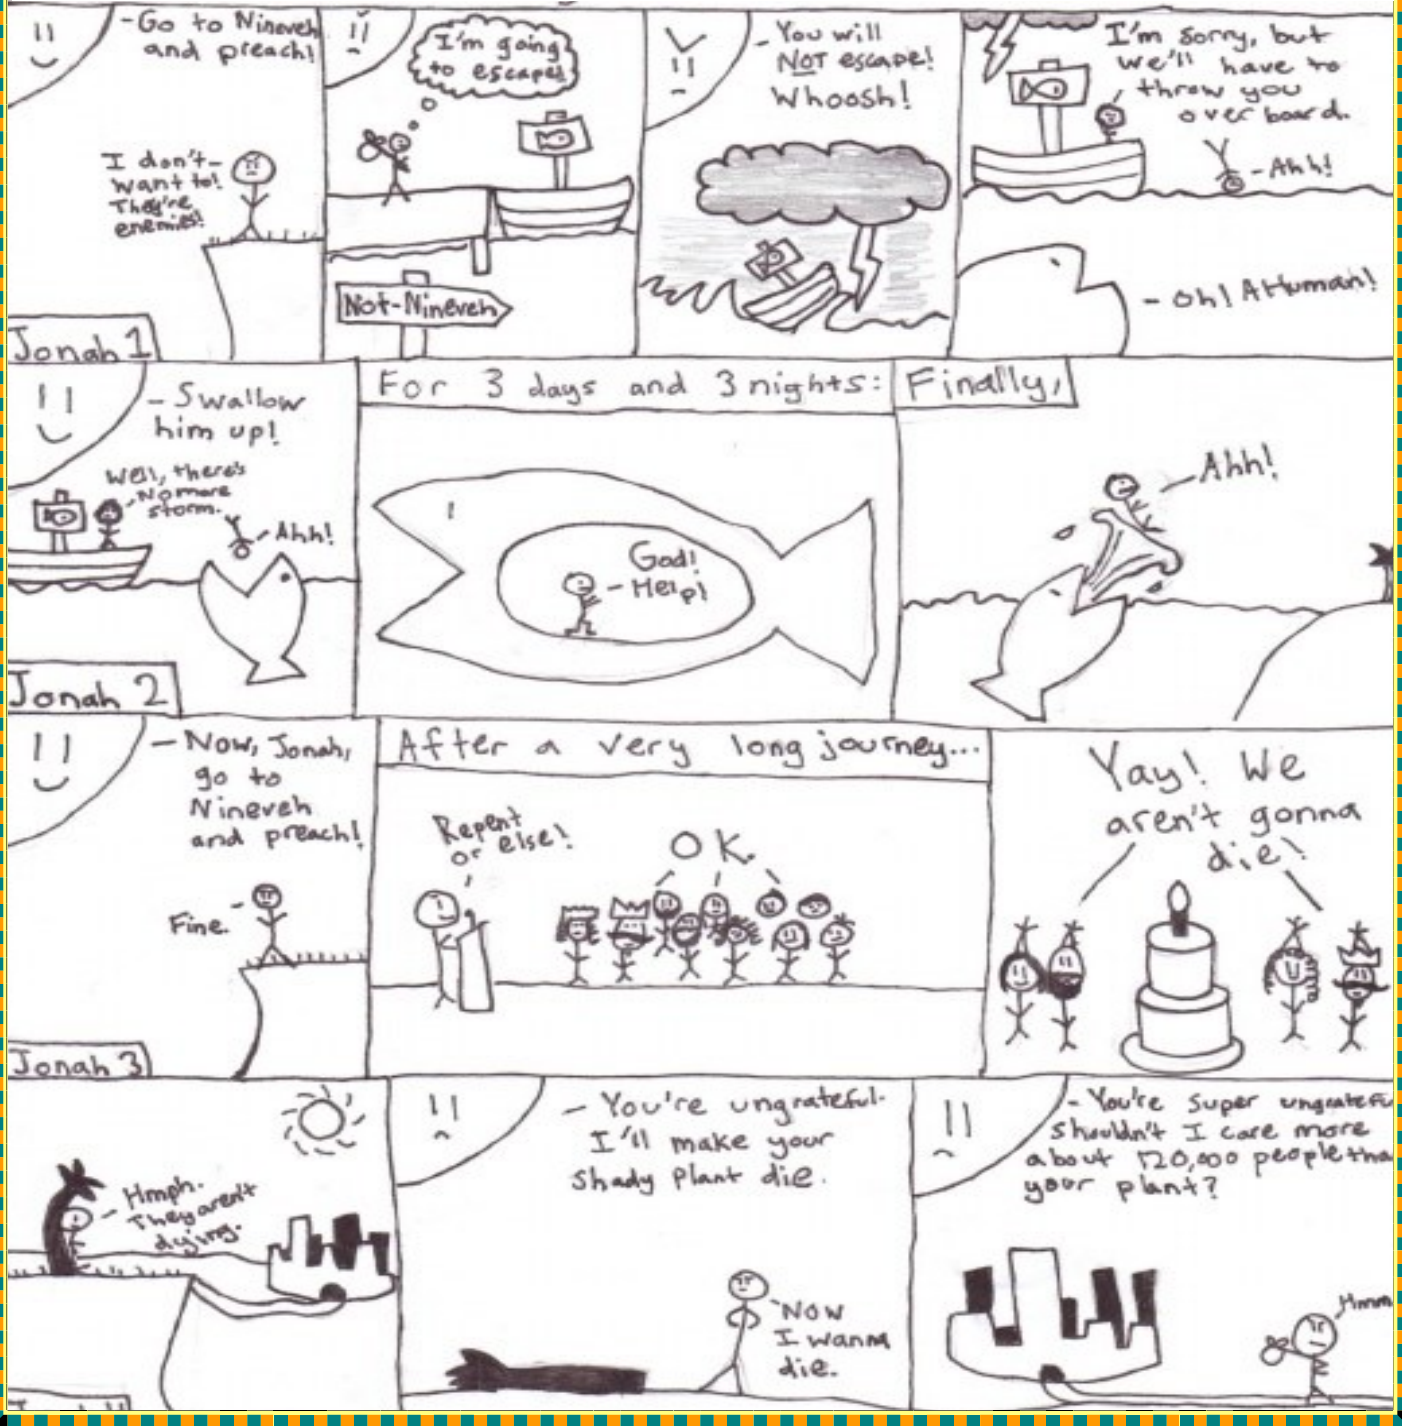 - Go to Nineveh
and preach!
I don't -
want to!
They're
enemies!
Jonah 1
I'm going
to escape!
Not-Nineveh
- You will
NOT escape!
Whoosh!
I'm sorry, but
we'll have to
throw you
over board.
- Ahh!
- Oh! A Human!
- Swallow
him up!
Well, there's
- No more
storm.
- Ahh!
Jonah 2
For 3 days and 3 nights:
God!
- Help!
Finally,
- Ahh!
- Now, Jonah,
go to
Nineveh
and preach!
Fine. -
Jonah 3
After a very long journey...
Repent
or else!
OK.
Yay! We
aren't gonna
die!
- Hmph.
They aren't
dying.
- You're ungrateful.
I'll make your
shady plant die.
- Now
I wanna
die.
- You're super
shouldn't I care more
about 120,000 people
your plant?